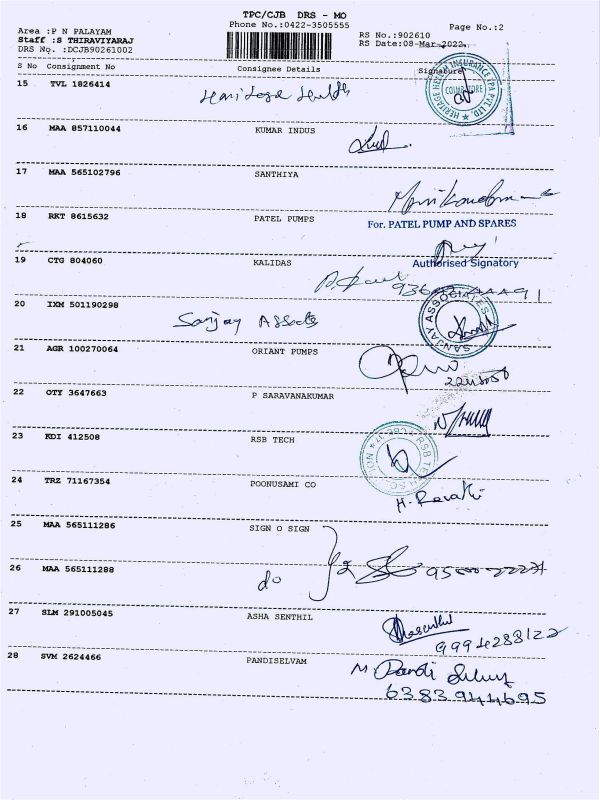 TPC/CJB DRS - MO
Phone No.:0422-3505555
Page No.:2
Area :P N PALAYAM
Staff :S THIRAVIYARAJ
DRS No. :DCJB90261002
RS No.:902610
RS Date:08-Mar-2022
S No Consignment No Consignee Details Signature
15 TVL 1826414 Heritage Health
HERITAGE HEALTH INSURANCE TPA PVT LTD
COIMBATORE
16 MAA 857110044 KUMAR INDUS
17 MAA 565102796 SANTHIYA
18 RKT 8615632 PATEL PUMPS
For. PATEL PUMP AND SPARES
Authorised Signatory
19 CTG 804060 KALIDAS
20 IXM 501190298 Sanjay Assots
SANJAY ASSOCIATES
21 AGR 100270064 ORIANT PUMPS
22 OTY 3647663 P SARAVANAKUMAR
23 KDI 412508 RSB TECH
RSB TECH
24 TRZ 71167354 POONUSAMI CO
H. Revathi
25 MAA 565111286 SIGN O SIGN
26 MAA 565111288 do
27 SLM 291005045 ASHA SENTHIL
9994283122
28 SVM 2624466 PANDISELVAM
M. Pandi Selvam
6383944695